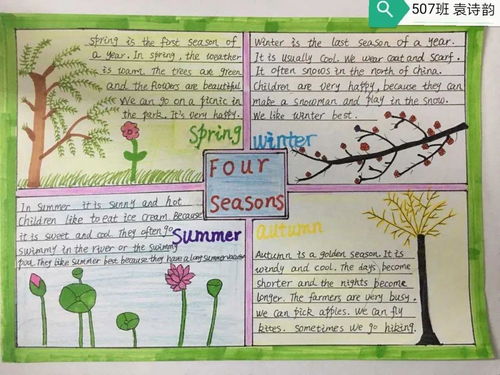 507班 袁诗韵
Spring is the first season of
a year. In spring, the weather
is warm. The trees are green
and the flowers are beautiful
We can go on a picnic in
the park. It's very happy.
Spring
Winter is the last season of a year.
It is usually cool. We wear coat and scarf.
It often snows in the north of china.
Children are very happy, because they can
make a snowman and play in the snow.
We like winter best.
winter
Four
Seasons
In summer it is sunny and hot
Children like to eat ice cream Because
it is sweet and cool. They often go
Swimmy in the river or the swimmy
pool. They like summer best because they have a long summer
Summer
autumn
Autumn is a golden season. It is
windy and cool. The days become
shorter and the nights become
longer. The farmers are very busy.
we can pick apples. we can fly
kites. sometimes we go hiking.